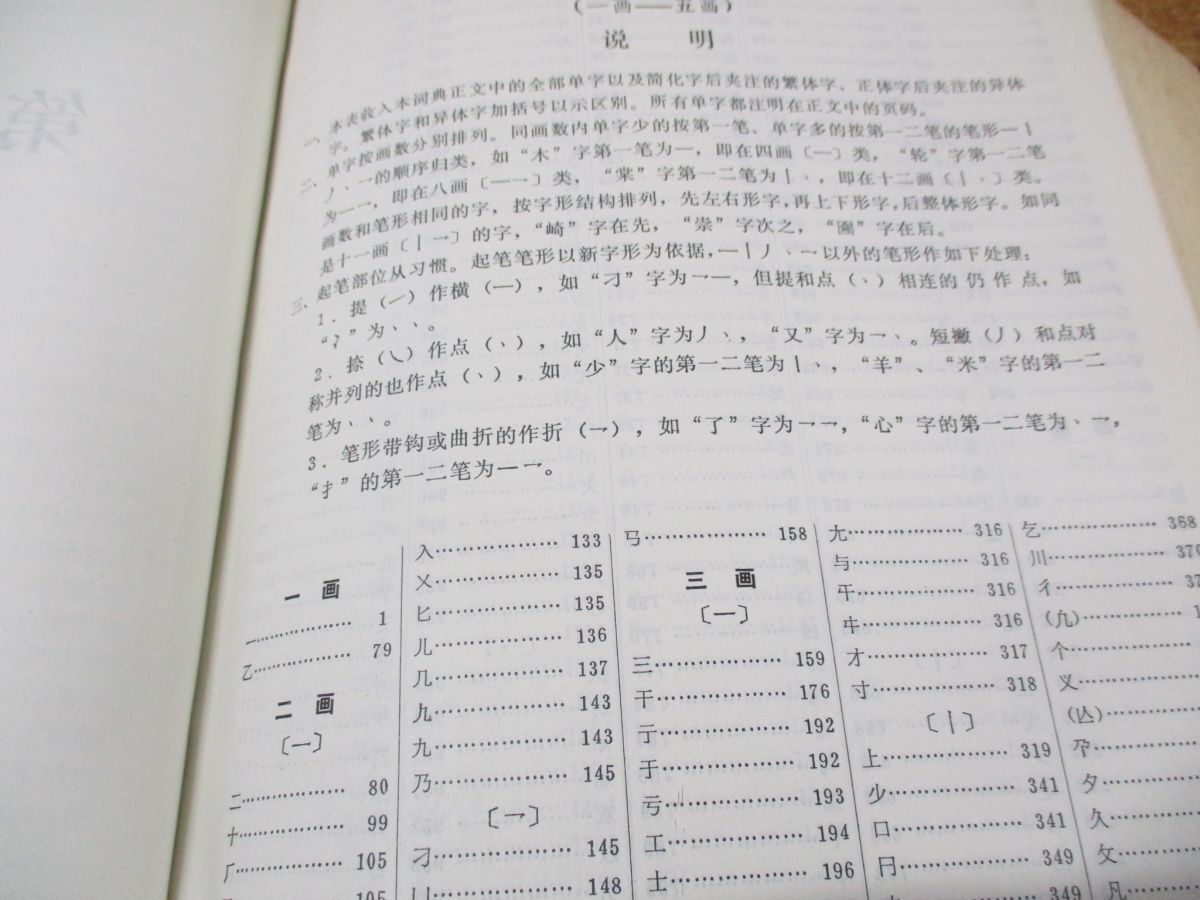 (一画——五画)
说 明
一、本表收入本词典正文中的全部单字以及简化字后夹注的繁体字、正体字后夹注的异体
字。繁体字和异体字加括号以示区别。所有单字都注明在正文中的页码。
二、单字按画数分别排列。同画数内单字少的按第一笔、单字多的按第一二笔的笔形一丨
丿、乛的顺序归类，如“木”字第一笔为一，即在四画〔一〕类，“轮”字第一二笔
为一一，即在八画〔一一〕类，“棠”字第一二笔为丨、，即在十二画〔丨、〕类。
画数和笔形相同的字，按字形结构排列，先左右形字，再上下形字，后整体形字。如同
是十一画〔丨乛〕的字，“崎”字在先，“崇”字次之，“圈”字在后。
三、起笔部位从习惯。起笔笔形以新字形为依据，一丨丿、乛以外的笔形作如下处理：
1．提（㇀）作横（一），如“刁”字为乛一，但提和点（、）相连的仍作点，如
“冫”为、、。
2．捺（㇏）作点（、），如“人”字为丿、，“又”字为乛、。短撇（丿）和点对
称并列的也作点（、），如“少”字的第一二笔为丨、，“羊”、“米”字的第一二
笔为、、。
3．笔形带钩或曲折的作折（乛），如“了”字为乛乛，“心”字的第一二笔为、乛，
“扌”的第一二笔为一乛。
一 画
一……………… 1
乙……………… 79
二 画
〔一〕
二……………… 80
十……………… 99
厂……………… 105
105
入……………… 133
乂……………… 135
匕……………… 135
儿……………… 136
几……………… 137
九……………… 143
九……………… 143
乃……………… 145
〔乛〕
刁……………… 145
凵……………… 148
马……………… 158
三 画
〔一〕
三……………… 159
干……………… 176
亍……………… 192
于……………… 192
亏……………… 193
工……………… 194
士……………… 196
尢……………… 316
与……………… 316
……………… 316
……………… 316
才……………… 317
寸……………… 318
〔丨〕
上……………… 319
少……………… 341
口……………… 341
……………… 349
349
乞……………… 368
川……………… 370
彳……………… 37
……………… 1
个………………
义………………
(亾)………………
夕………………
久………………
攵………………
凡………………
第